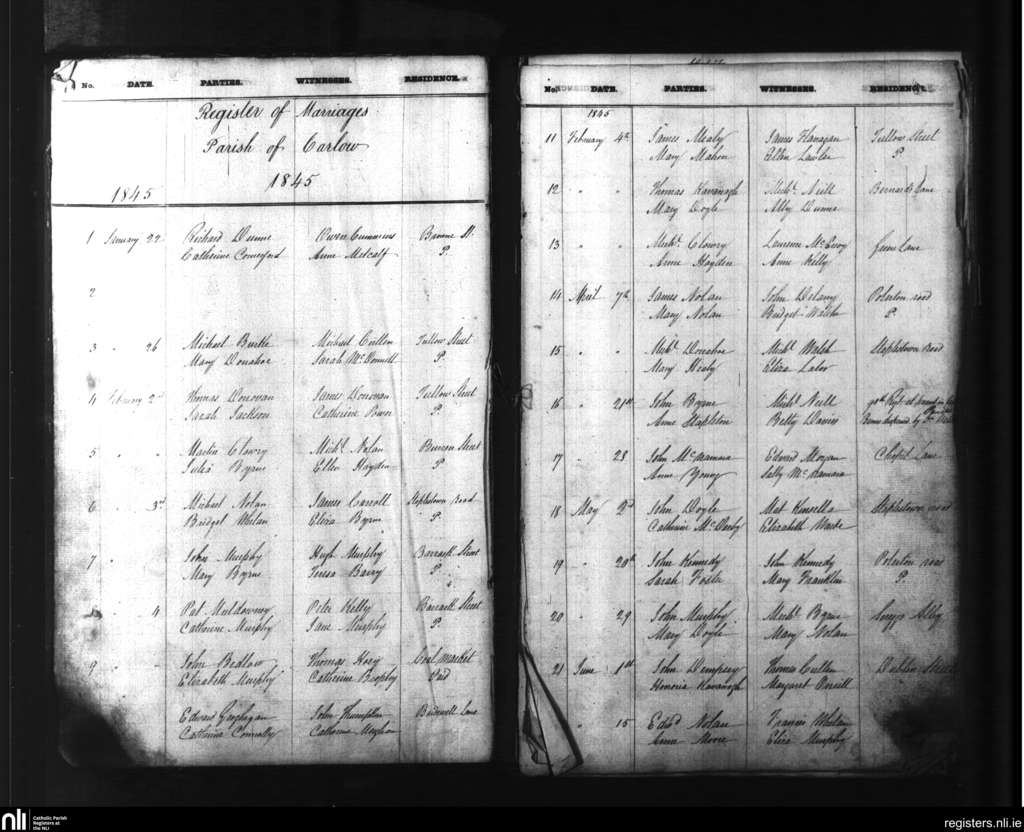 No. DATE. PARTIES. WITNESSES. RESIDENCE.
Register of Marriages
Parish of Carlow
1845
1845
1 January 22 Richard Dunne Owen Cummins Barrack St.
Catherine Comerford Anne Metcalf P.
2
3 " 26 Michael Burke Michael Cullen Tullow Street
Mary Donahoe Sarah McDonnell P.
4 February 2nd Thomas Donovan James Donovan Tullow Street
Sarah Jackson Catherine Power P.
5 " " Martin Clowry Michl. Nolan Burrin Street
Julia Byrne Ellen Hayden P
6 " 3rd Michael Nolan James Carroll Staplestown Road
Bridget Whelan Eliza Byrne P.
7 " John Murphy Hugh Murphy Barrack Street
Mary Byrne Teresa Barry P.
" 4 Pat Muldowney Peter Kelly Barrack Street
Catherine Murphy Jane Murphy P.
9 " John Bedlow Thomas Hoey Coal Market
Elizabeth Murphy Catherine Brophy Paid
Edward Geoghegan John Thompson Bridewell Lane
Catherine Connolly Catherine Meighan
No. DATE. PARTIES. WITNESSES. RESIDENCE.
1845
11 February 4th James Mealy James Flanagan Tullow Street
Mary Mahon Ellen Lawler P
12 " " Thomas Kavanagh Michl. Neill Bernards Lane
Mary Doyle Alby Dunne
13 " " Michl. Clowry Laurence McEvoy Green Lane
Anne Hayden Anne Kelly
14 April 7th James Nolan John Delany Polerton road
Mary Nolan Bridget Walshe P
15 " " Michl. Donahoe Michl. Walsh Staplestown Road
Mary Healy Eliza Lalor
16 " 21st John Byrne Michl. Neill
Anne Stapleton Betty Davis Banns dispensed by
17 " 28 John McNamara Edward Moran Chapel Lane
Anne Young Sally McNamara
18 May 2nd John Doyle Mat Kinsella Staplestown road
Catherine McDarby Elizabeth Wade
19 " 20th John Kennedy John Kennedy Polerton road
Sarah Foster Mary Franklin P.
20 " 29 John Murphy Michl. Byrne Alley
Mary Doyle Mary Nolan
21 June 1st John Dempsey Thomas Cullen Dublin Street
Honoria Kavanagh Margaret Oneill
" 15 Edwd Nolan Francis Whelan
Anne Moore Eliza Murphy
nli Catholic Parish
Registers at
the NLI
registers.nli.ie